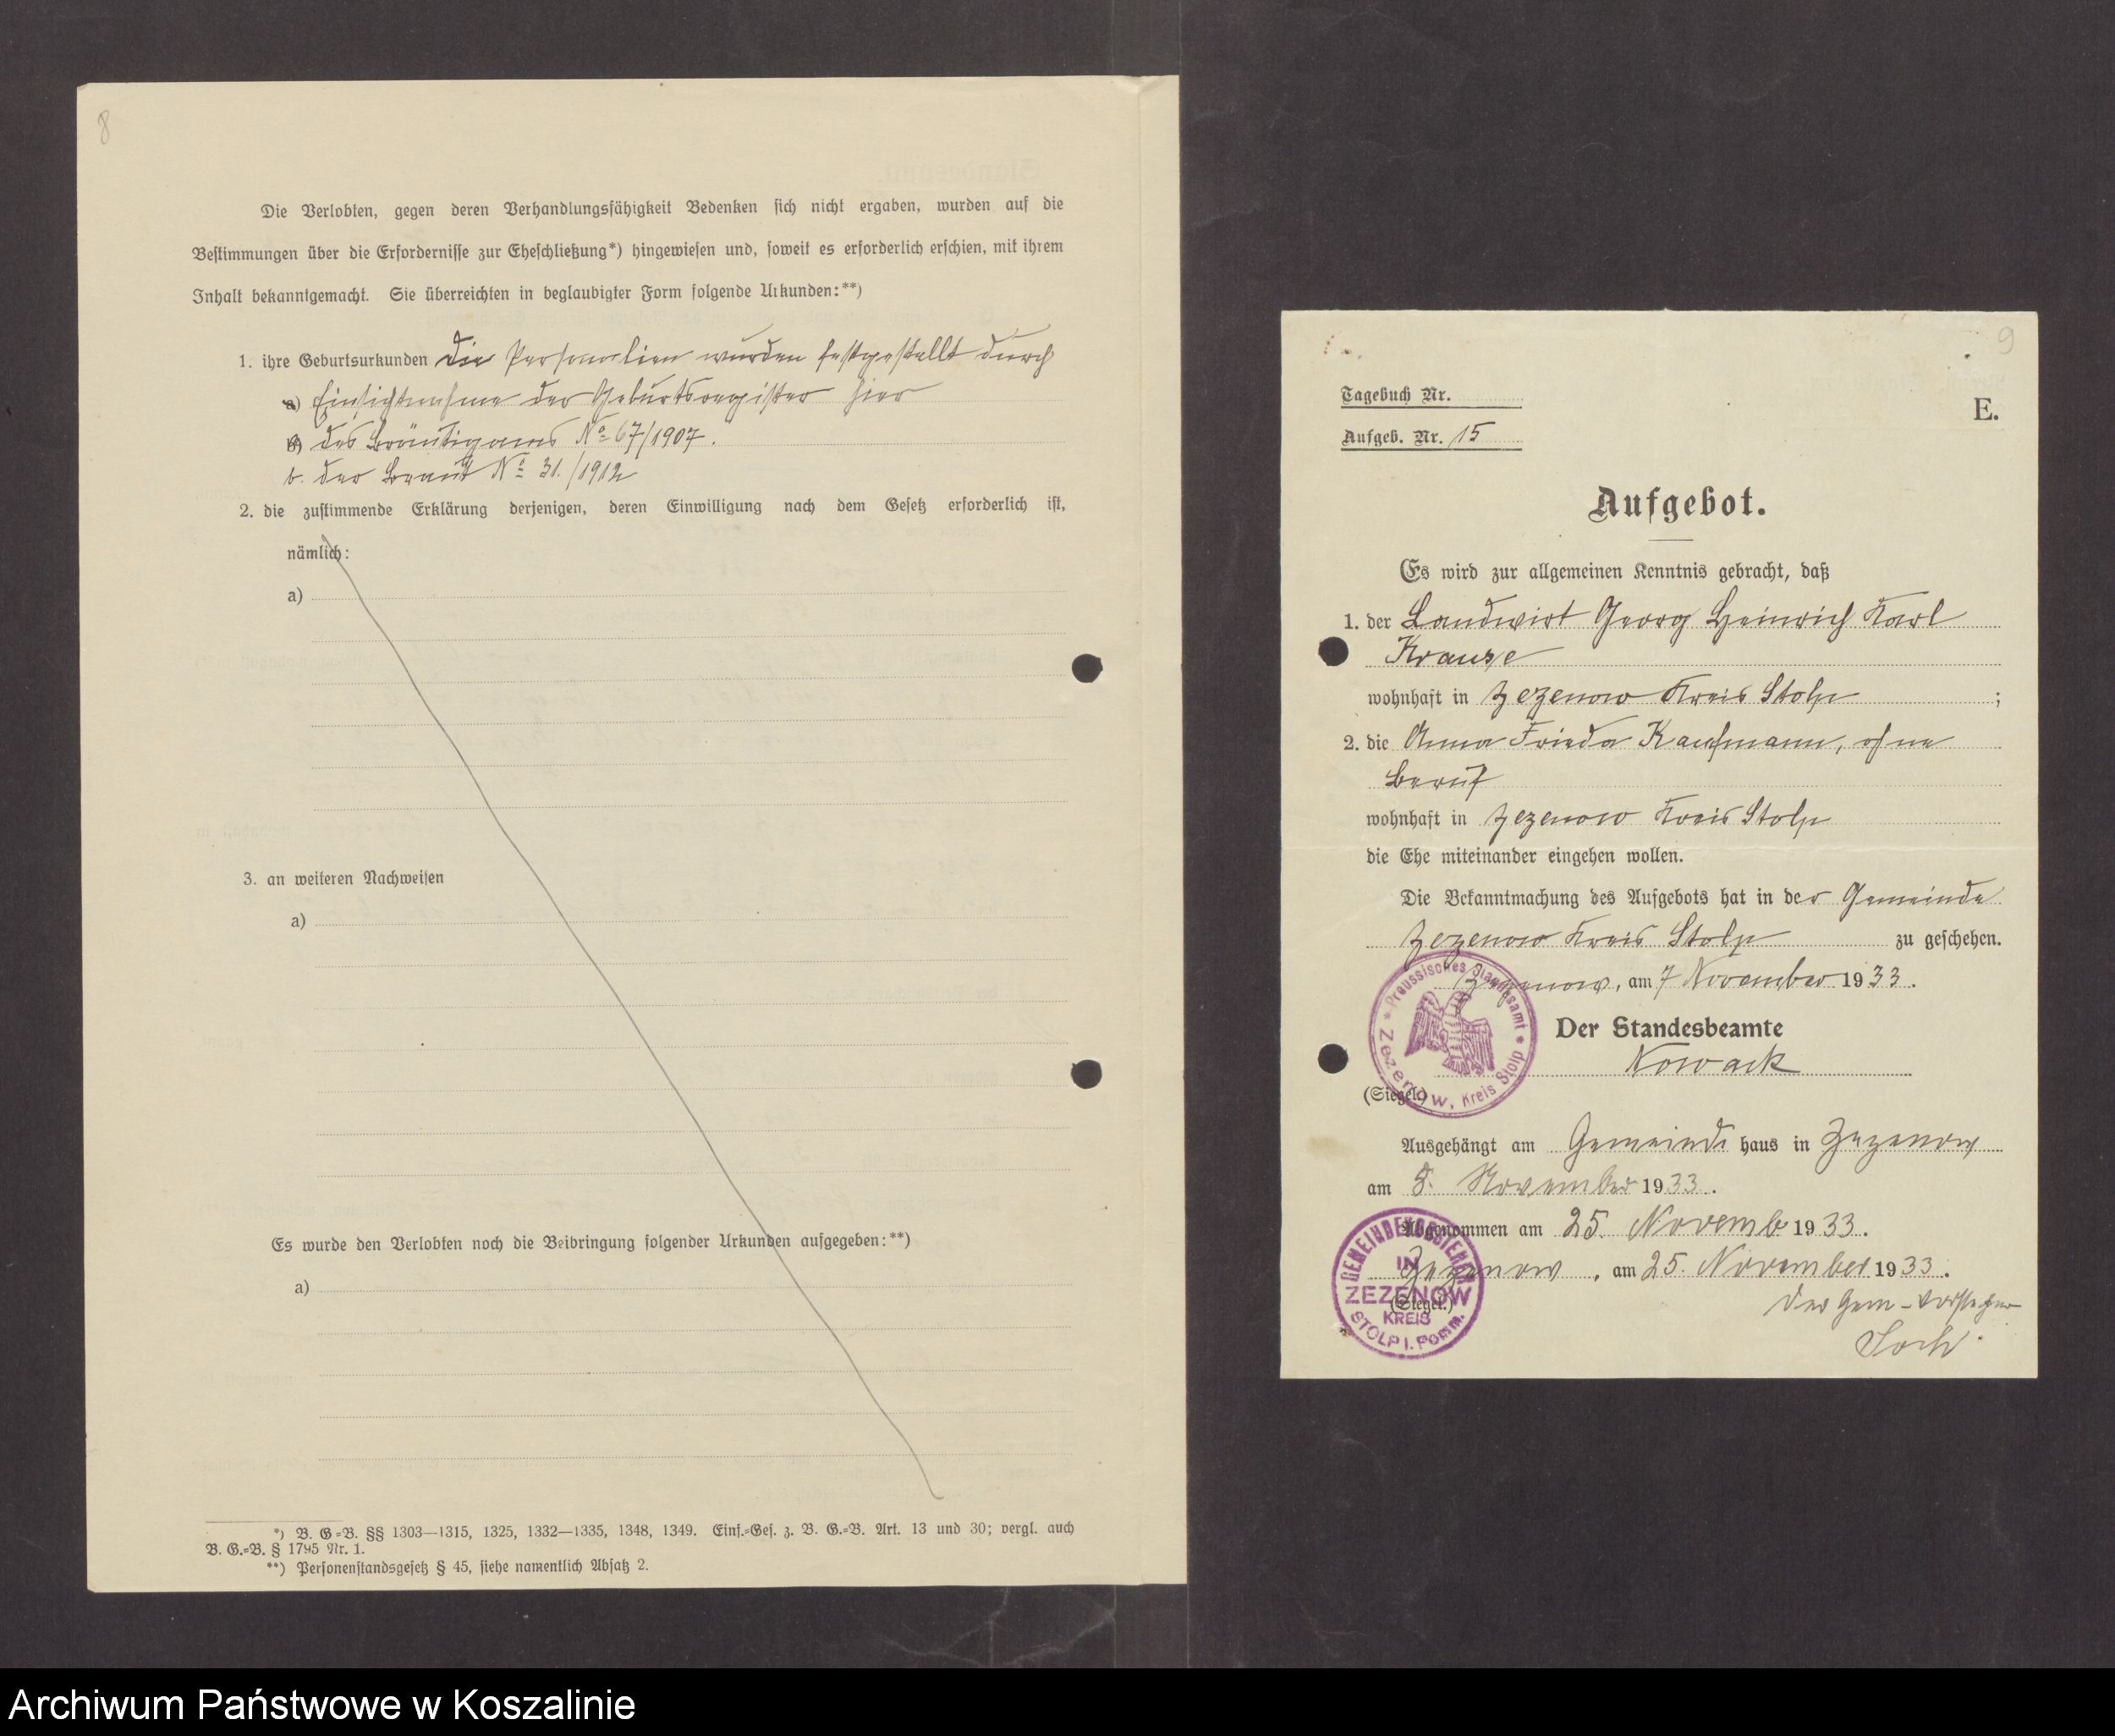 8
Die Verlobten, gegen deren Verhandlungsfähigkeit Bedenken sich nicht ergaben, wurden auf die
Bestimmungen über die Erfordernisse zur Eheschließung*) hingewiesen und, soweit es erforderlich erschien, mit ihrem
Inhalt bekanntgemacht. Sie überreichten in beglaubigter Form folgende Urkunden:**)
1. ihre Geburtsurkunden Die Personalien wurden festgestellt durch
a) Einsichtnahme der Geburtsregister hier
a) des Bräutigams No 67/1907.
b. der Braut No 31./1912
2. die zustimmende Erklärung derjenigen, deren Einwilligung nach dem Gesetz erforderlich ist,
nämlich:
a)
3. an weiteren Nachweisen
a)
Es wurde den Verlobten noch die Beibringung folgender Urkunden aufgegeben:**)
a)
*) B. G=B. §§ 1303—1315, 1325, 1332—1335, 1348, 1349. Einf.=Ges. z. B. G.=B. Art. 13 und 30; vergl. auch
B. G.=B. § 1795 Nr. 1.
**) Personenstandsgesetz § 45, siehe namentlich Absatz 2.
9
Tagebuch Nr.
E.
Aufgeb. Nr. 15
Aufgebot.
Es wird zur allgemeinen Kenntnis gebracht, daß
1. der Landwirt Georg Heinrich Karl
Krause
wohnhaft in Zezenow Kreis Stolp ;
2. die Anna Frieda Kaufmann, ohne
Beruf
wohnhaft in Zezenow Kreis Stolp
die Ehe miteinander eingehen wollen.
Die Bekanntmachung des Aufgebots hat in der Gemeinde
Zezenow Kreis Stolp zu geschehen.
Zezenow, am 7 November 1933.
Preussisches Standesamt * Zezenow, Kreis Stolp *
Der Standesbeamte
Nowack
(Siegel.)
Ausgehängt am Gemeinde haus in Zezenow
am 8. November 1933.
Abgenommen am 25. Novemb 1933.
Zezenow, am 25. November 1933.
GEMEINDEVORSTEHER
IN
ZEZENOW
KREIS
STOLP I. Pomm.
(Siegel.)
Der Gem-Vorsteher
Archiwum Państwowe w Koszalinie